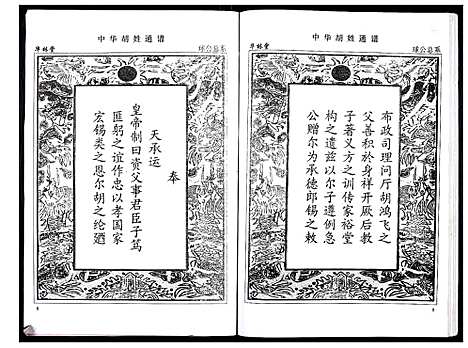 中华胡姓通谱
华林堂
奉
天承运
皇帝制曰资父事君臣子笃
匪躬之谊作忠以孝国家
宏锡类之恩尔胡之纶廼
中华胡姓通谱
球公总系
布政司理问厅胡鸿飞之
父善积於身祥开厥后教
子著义方之训传家裕堂
构之遗兹以尔子遵例急
公赠尔为承德郎锡之敕